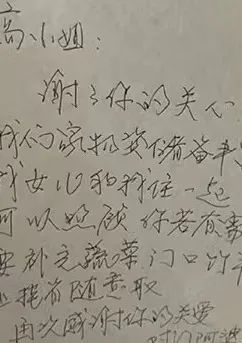 高小姐：
谢谢你的关心
我们家物资储备丰
我女儿和我住一起
可以照顾 你若有需
要补充蔬菜 门口
随意取
再次感谢你的关爱
对门阿婆